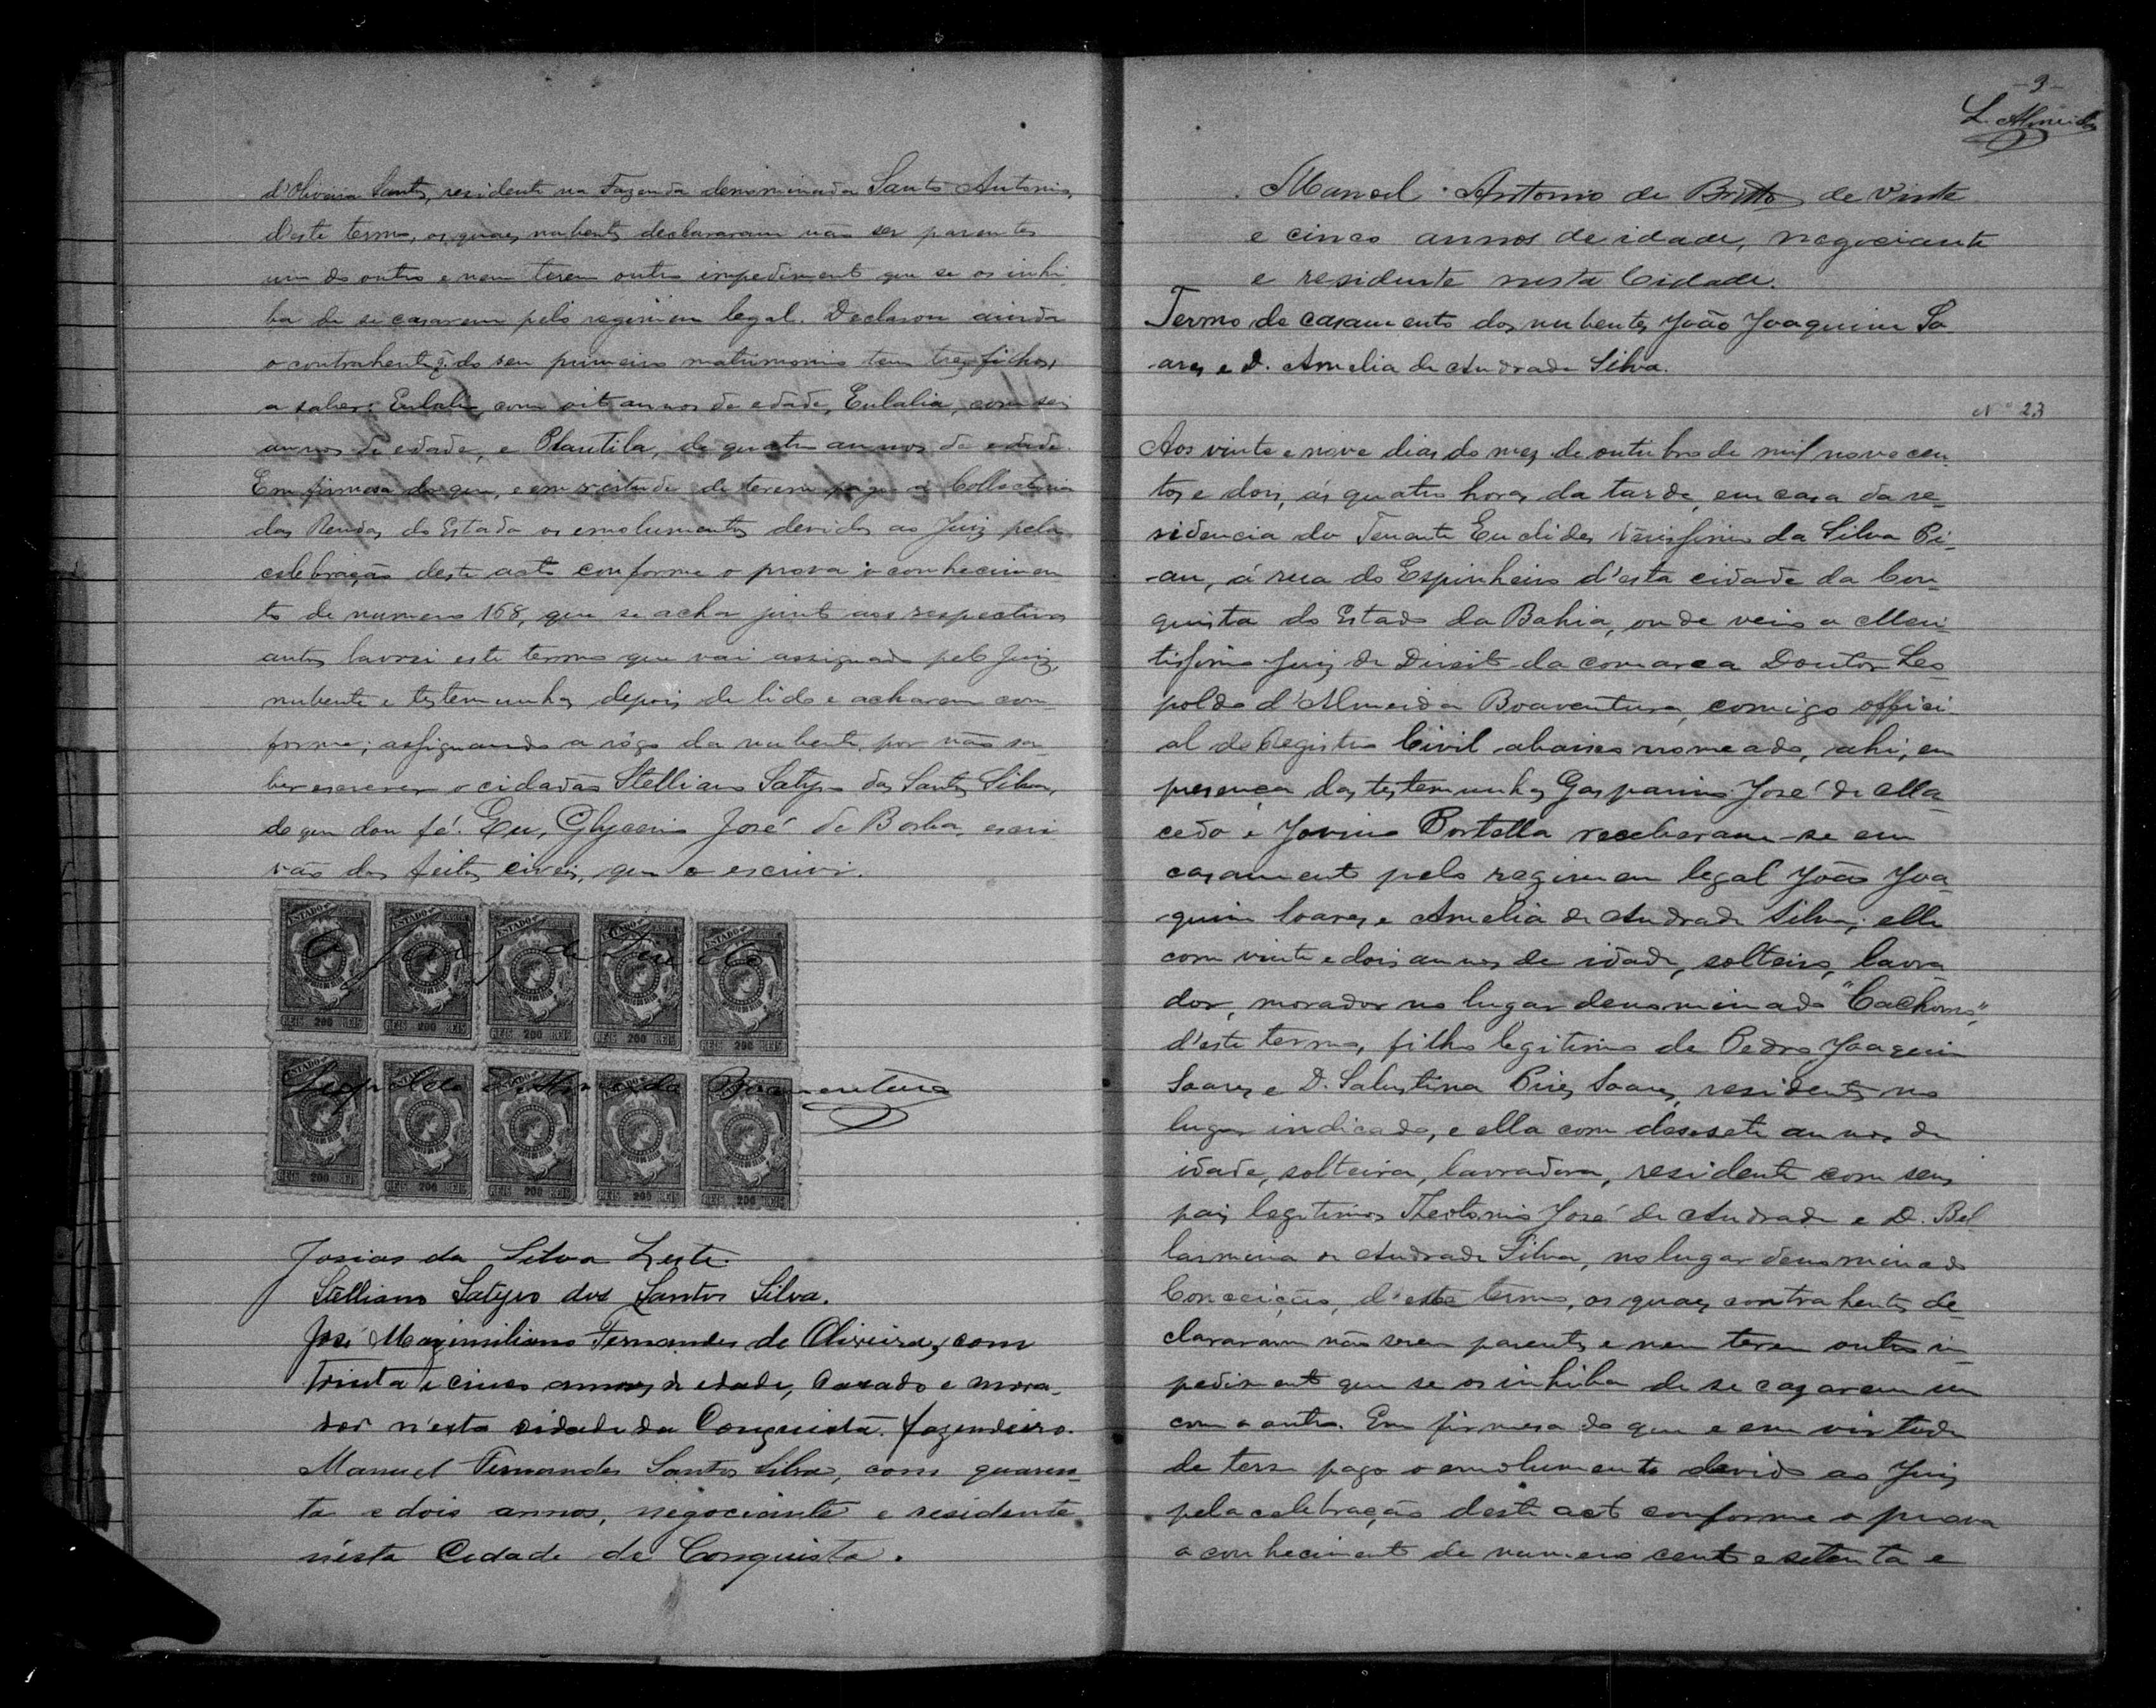 d'Oliveira Santos, residente na Fazenda denominada Santo Antonio,
d'este termo, os quaes nubentes declararam não ser parentes
um do outro e nem terem outro impedimento que se os inhi
ba de se casarem pelo regimen legal. Declarou ainda
o contrahente q. do seu primeiro matrimonio tem tres filhos,
a saber: com oit annos de edade, Eulalia, com seis
annos de edade, e Plautila, de quatro annos de edade.
Em firmesa do que, e em virtude de terem pago a Collectoria
das Rendas do Estado os emolumentos devidos ao Juiz pela
celebração deste acto conforme o prova o conhecimen
to de numero 168, que se acha junto aos respectivos
autos lavrei este termo que vai assignado pelo Juiz,
nubente e testemunhas depois de lido e acharem con-
forme; assignando a rôgo da nubente, por não sa-
ber escrever o cidadão Stelliano Satyro dos Santos Silva,
do que dou fé. Eu, Glycerio José de Borba, escri
vão dos feitos civeis, que o escrivi.
O Juiz de Direito
Leopoldo d'Almeida Boaventura
ESTADO DA BAHIA
REIS 200 REIS
Josias da Silva Leite.
Stelliano Satyro dos Santos Silva.
José Maximiliano Fernandes de Oliveira, com
trinta e cinco annos de edade, Casado e mora-
dor n'esta cidade da Conquista. fazendeiro.
Manuel Fernandes Santos Silva, com quaren-
ta e dois annos, negociante e residente
nésta Cidade de Conquista.
9
L. Almeida
Manoel Antonio de Britto de vinte
e cinco annos de idade, negociante
e residente nesta Cidade.
Termo de casamento dos nubentes João Joaquim So
ares e D. Amelia de Andrade Silva.
Nº 23
Aos vinte e nove dias do mez de outubro de mil novecen-
tos e dois, ás quatro horas da tarde, em casa da re-
sidencia do Tenente Euclides da Silva Pi-
au, á rua do Espinheiro d'esta cidade da Con-
quista do Estado da Bahia, onde veio o Meri-
tissimo Juiz de Direito da comarca Doutor Leo
poldo d'Almeida Boaventura, comigo offici-
al do Registro Civil abaixo nomeado, ahi, em
presença das testemunhas Gasparino José de Ma-
cedo e Jovino Portella receberam-se em
casamento pelo regimen legal João Joa-
quim Soares e Amelia de Andrade Silva; elle
com vinte e dois annos de idade, solteiro, lavra
dor, morador no lugar denominado
d'este termo, filho legitimo de Pedro Joaquim
Soares e D. Salustina Pires Soares, residentes no
lugar indicado, e ella com desesete annos de
idade, solteira, lavradora, residente com seus
pais legitimos Theotonio José de Andrade e D. Bel
larmina de Andrade Silva, no lugar denominado
Conceição, d'este termo, os quaes contrahentes de-
clararam não serem parentes e nem terem outro im-
pedimento que se os inhiba de se casarem um
com o outro. Em firmesa do que e em virtude
de terem pago o emolumento devido ao Juiz
pela celebração deste acto conforme o prova
o conhecimento de numero cento e setenta e